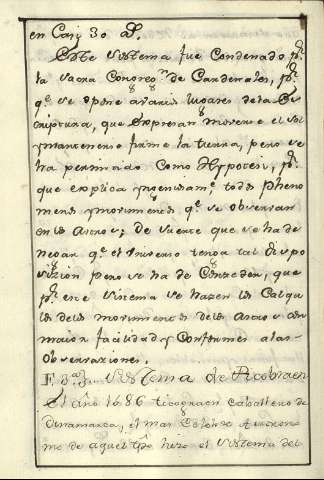 en Casi 30 As.
Este Systema fue Condenado pr.
la Sacra Congregon. de Cardenales, pr.
qe. se opone a varios lugares de la Es
criptura, que expresan moverse el sol
y mantenerse firme la tierra, pero se
ha permitido Como Hypotesi, pr.
que explica ingeniosamte. todos pheno
menos y movimientos qe. se observan
en los Astros; de suerte que se ha de
negar qe. el Universo tenga tal dispo
sizion pero se ha de Conzeder, que
pr. este Sistema se hazen los Calqu
los de los movimientos de los Astros con
maior facilidad y Conformes a las
Observaziones.
F. 3a. Systema de Ticobraen
El año 1686 ticobraen Caballero de
Dinamarca, el mas Celebre Astrono
mo de aquel tpo. hizo el Systema del